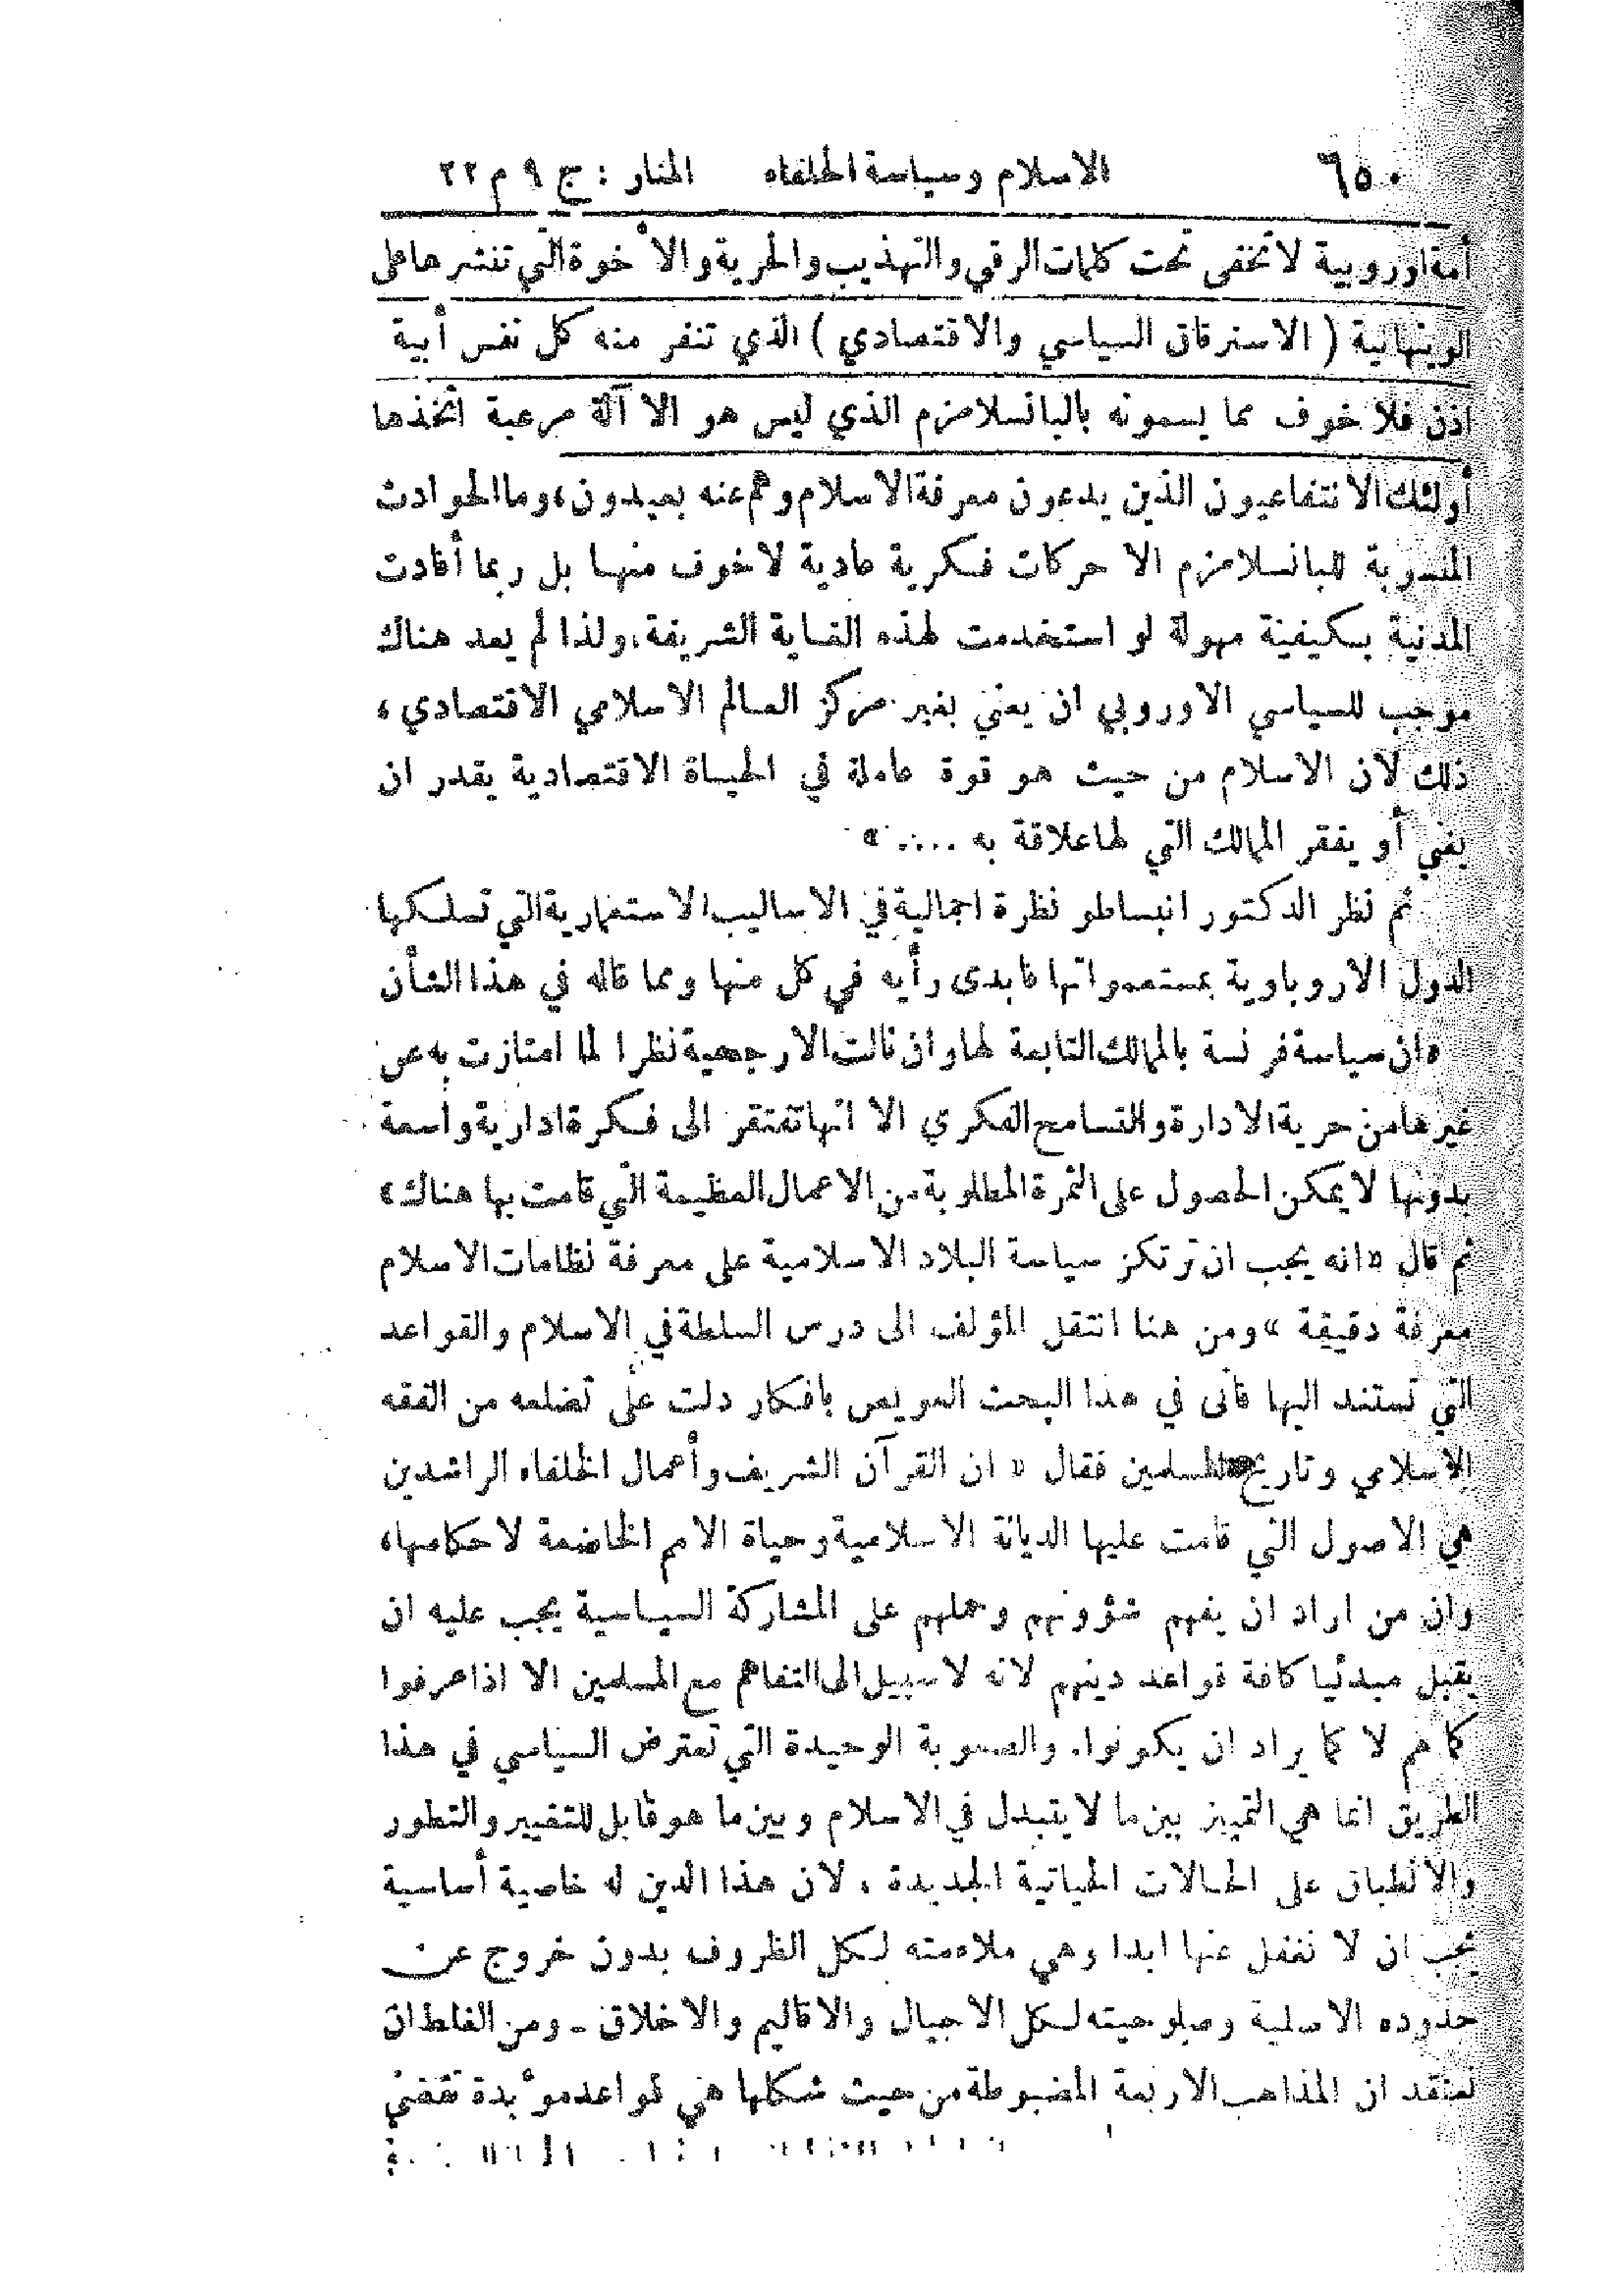 ٦٥٠ الاسلام وسياسة الخلفاء المنار : ج ٩ م ٢٢
أمة اوروبية لا تختفى تحت كلمات الرقي والتهذيب والحرية والأخوة التي تنشرها على
( الاسترقاق السياسي والاقتصادي ) الذي تنفر منه كل نفس أبية
اذن فلا خوف مما يسمونه بالبانسلامزم الذي ليس هو الا آلة مرعبة اتخذها
أولئك الانتفاعيون الذين يدعون معرفة الاسلام وهم عنه بعيدون، وما الحوادث
المنسوبة للبانسلامزم الا حركات فكرية عادية لا خوف منها بل ربما أفادت
المدنية بكيفية مهولة لو استخدمت لهذه الغاية الشريفة. ولذا لم يعد هناك
موجب للسياسي الاوروبي ان يعنى بغير مركز العالم الاسلامي الاقتصادي،
ذلك لان الاسلام من حيث هو قوة عاملة في الحياة الاقتصادية يقدر ان
يغني أو يفقر الممالك التي لها علاقة به .... »
ثم نظر الدكتور انبساطو نظرة اجمالية في الاساليب الاستعمارية التي تسلكها
الدول الاروباوية بمستعمراتها فابدى رأيه في كل منها ومما قاله في هذا الشأن
«ان سياسة فرنسة بالممالك التابعة لها وان نالت الارجحية نظرا لما امتازت به عن
غيرها من حرية الادارة والتسامح الفكري الا انها تفتقر الى فكرة ادارية واسعة
بدونها لا يمكن الحصول على الثمرة المطلوبة من الاعمال العظيمة التي قامت بها هناك»
ثم قال «انه يجب ان ترتكز سياسة البلاد الاسلامية على معرفة نظامات الاسلام
معرفة دقيقة» ومن هنا انتقل المؤلف الى درس السلطة في الاسلام والقواعد
التي تستند اليها فأتى في هذا البحث العويص بافكار دلت على تضلعه من الفقه
الاسلامي وتاريخ المسلمين فقال « ان القرآن الشريف وأعمال الخلفاء الراشدين
هي الاصول التي قامت عليها الديانة الاسلامية وحياة الامم الخاضعة لاحكامها،
وان من اراد ان يفهم شؤونهم وحملهم على المشاركة السياسية يجب عليه ان
يقبل مبدئيا كافة قواعد دينهم لانه لا سبيل الى التفاهم مع المسلمين الا اذا عرفوا
كما هم لا كما يراد ان يكونوا. والصعوبة الوحيدة التي تعترض السياسي في هذا
الطريق انما هي التمييز بين ما لا يتبدل في الاسلام وبين ما هو قابل للتغيير والتطور
والانطباق على الحالات الحياتية الجديدة ، لان هذا الدين له خاصية أساسية
يجب ان لا نغفل عنها ابدا وهي ملاءمته لكل الظروف بدون خروج عن
حدوده الاصلية وصلوحيته لكل الاجيال والاقاليم والاخلاق - ومن الغلط ان
نعتقد ان المذاهب الاربعة المضبوطة من حيث شكلها هي قواعد مؤبدة تقضي